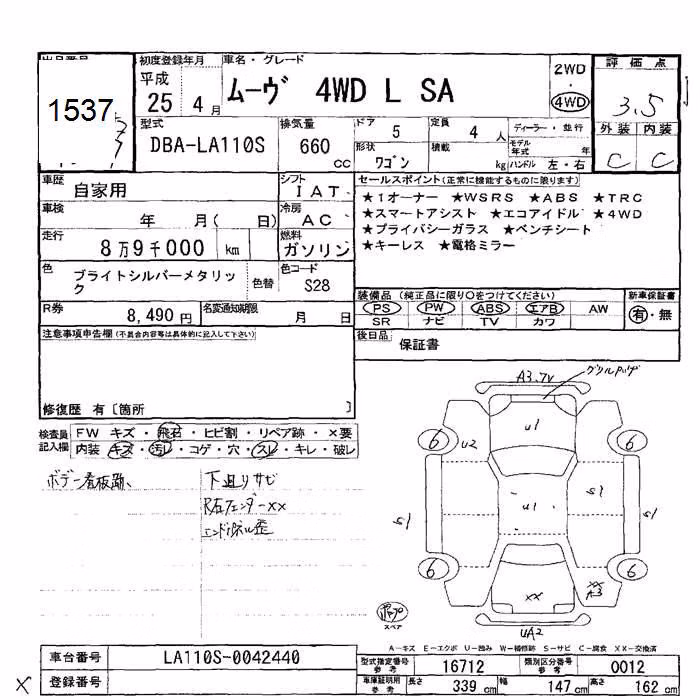 出品番号
1537
初度登録年月
平成
25年4月
車名・グレード
ムーヴ 4WD L SA
2WD
・
4WD
評価点
3.5
外装 内装
C C
型式
DBA-LA110S
排気量
660 cc
ドア 5
定員 4 人
ディーラー・並行
モデル年式 年
形状 ワゴン
積載 kg
ハンドル 左・右
車歴
自家用
シフト
IAT
セールスポイント(正常に機能するものに限ります)
★1オーナー ★WSRS ★ABS ★TRC
★スマートアシスト ★エコアイドル ★4WD
★プライバシーガラス ★ベンチシート
★キーレス ★電格ミラー
車検
年 月( 日)
冷房
AC
走行
8万9千000 km
燃料
ガソリン
色
ブライトシルバーメタリック
色替
色コード
S28
R券
8,490円
名変通知期限
月 日
装備品 (純正品に限り○をつけてください)
PS PW ABS エアB AW
SR ナビ TV カワ
新車保証書
有・無
注意事項申告欄(不具合内容等は具体的に記入して下さい)
後日品
保証書
修復歴 有〔箇所 〕
検査員記入欄
FW キズ・飛石・ヒビ割・リペア跡・×要
内装 キズ・汚レ・コゲ・穴・スレ・キレ・破レ
ボデー看板跡、
下廻りサビ
R右フェンダーXX
エンドパネル歪
A3.7V
グリルハゲ
U1
U2
6
6
U1
S1
S1
S1
6
6
XX
XX
A3
UA2
スペア
A-キズ E-エクボ U-凹み W-補修跡 S-サビ C-腐食 XX-交換済
車台番号
LA110S-0042440
型式指定番号 参考
16712
類別区分番号 参考
0012
登録番号
車庫証明用 参考
長さ 339 cm
幅 147 cm
高さ 162 cm
X